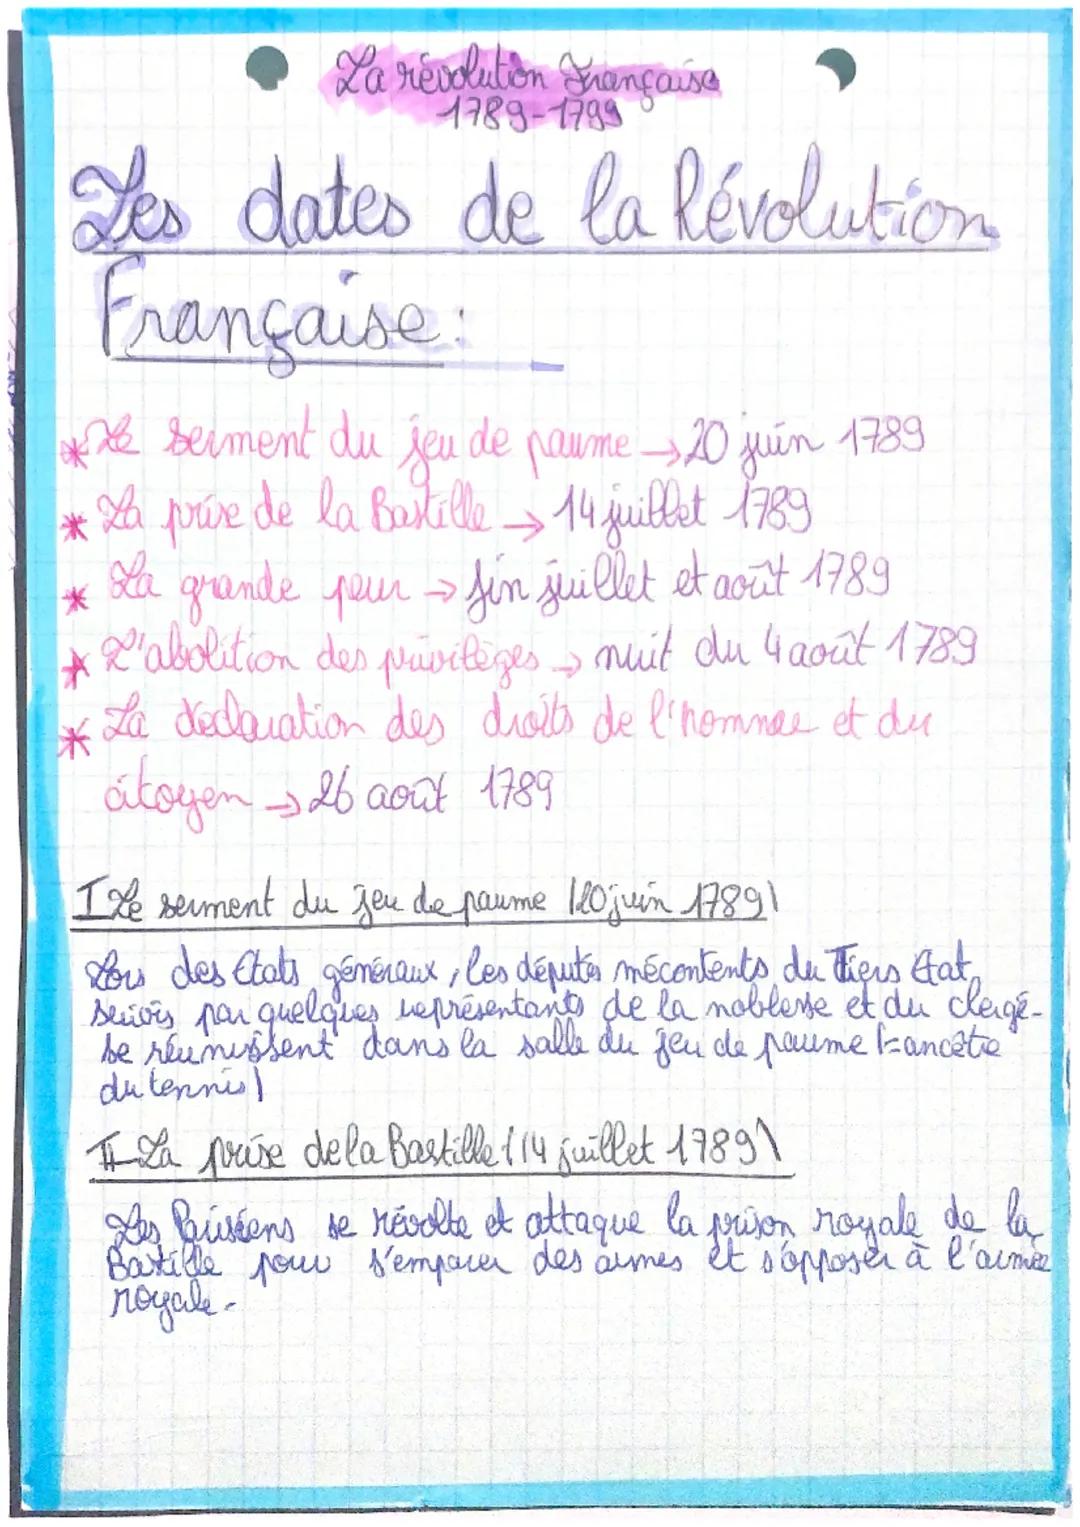 La révolution Française
1789-1799
Les dates de la Révolution
Française:
* Le serment du jeu de paume → 20 juin 1789
* La prise de la Bastille → 14 juillet 1789
* La grande peur → fin juillet et août 1789
* L'abolition des privilèges → nuit du 4 août 1789
* La déclaration des droits de l'homme et du
citoyen → 26 août 1789
I Le serment du jeu de paume (20 juin 1789)
Lors des Etats généraux, les députés mécontents du Tiers Etat,
suivis par quelques représentants de la noblesse et du clergé.
se réunissent dans la salle du jeu de paume (=ancêtre
du tennis)
II-La prise de la Bastille (14 juillet 1789)
Les Parisiens se révolte et attaque la prison royale de la
Bastille pour s'emparer des armes et s'opposer à l'armée
royale.